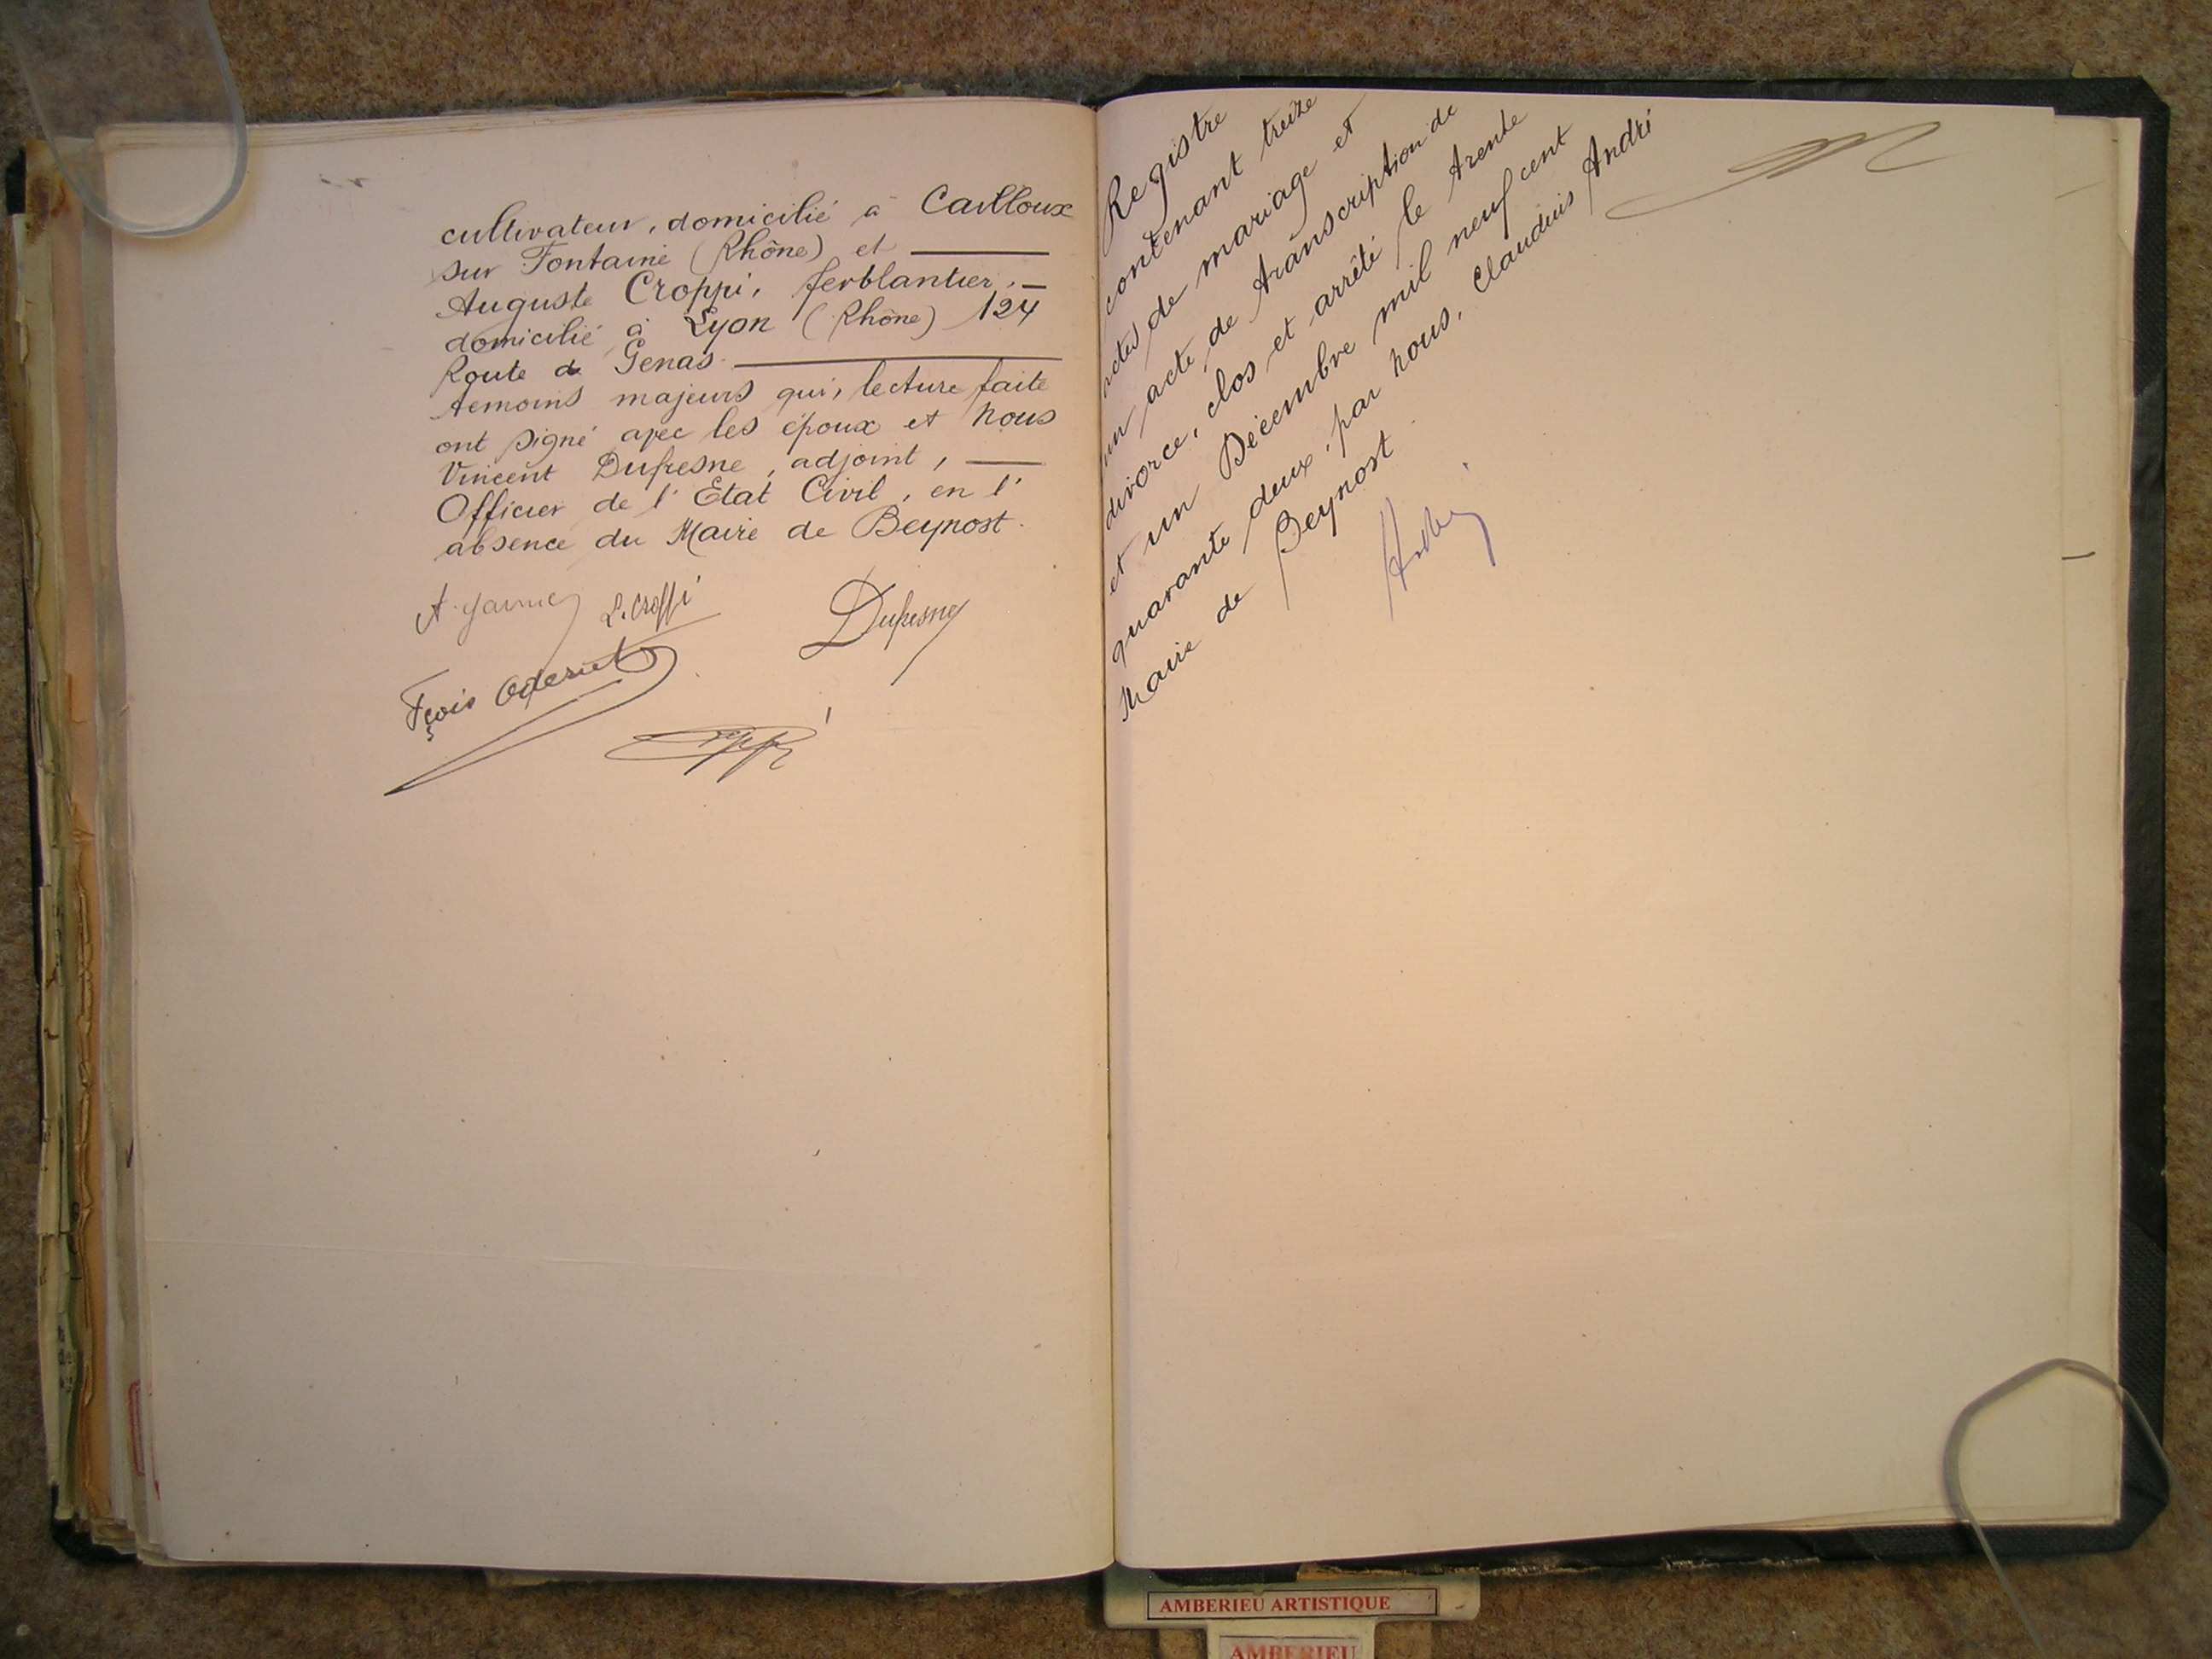 cultivateur, domicilié à Cailloux
sur Fontaine (Rhône) et
Auguste Croppi, ferblantier,
domicilié à Lyon (Rhône) 124
Route de Genas
temoins majeurs qui, lecture faite
ont signé avec les époux et Nous
Vincent Dufresne, adjoint,
Officier de l'Etat Civil, en l'
absence du Maire de Beynost.
L. Croppi
Dufresne
Croppi
Registre
contenant treize
actes de mariage et
un acte de transcription de
divorce, clos et arrêté le trente
et un Décembre mil neuf cent
quarante deux, par nous, Claudius André
Maire de Beynost
André
AMBERIEU ARTISTIQUE
AMBERIEU